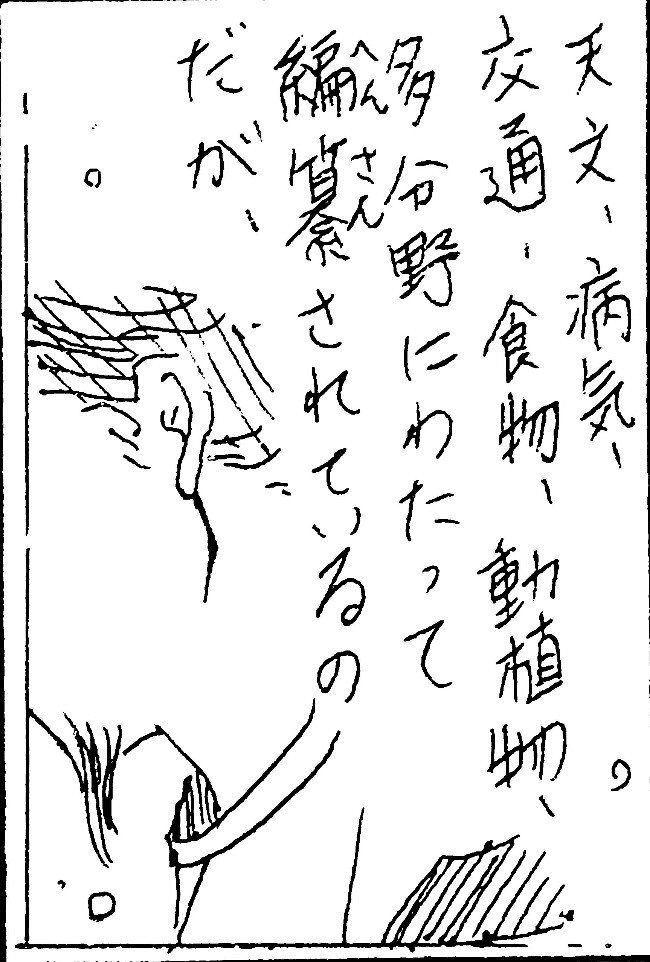 天文、病気、
交通、食物、動植物、
多分野にわたって
編纂されているの
だが、
へん
さん